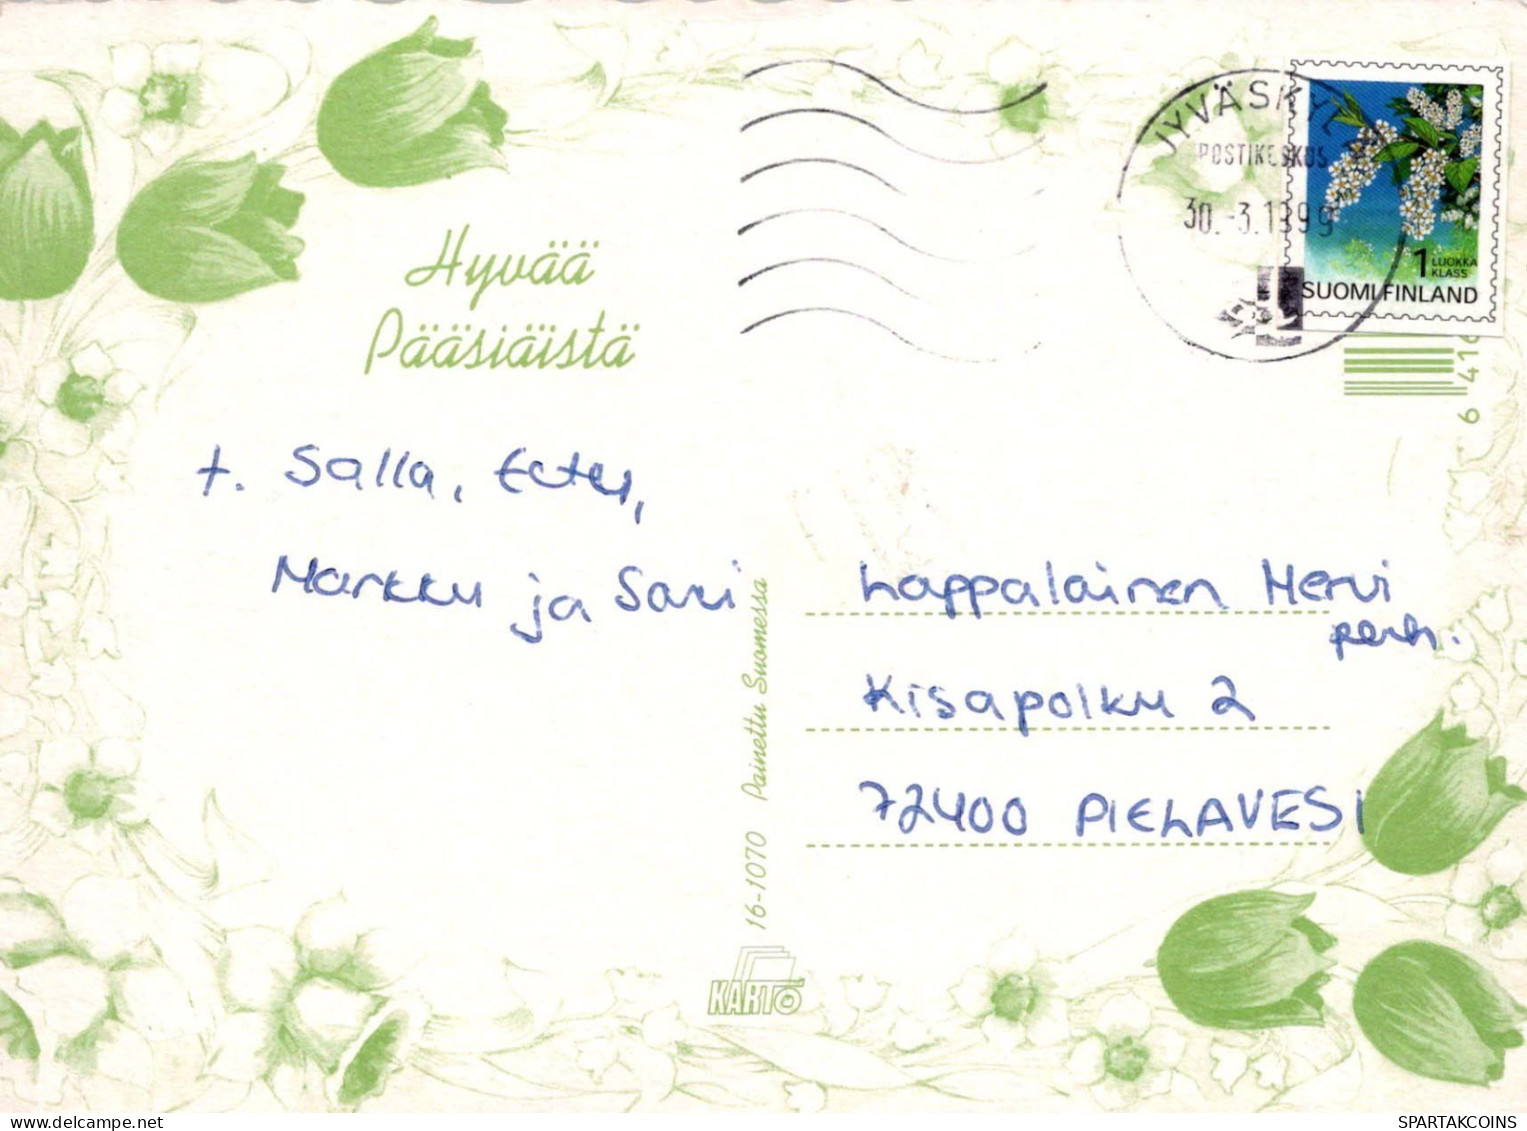 Hyvää
Pääsiäistä
t. Salla,
Markku ja Sari
16-1070 Painettu Suomessa
KARTO
JYVÄSKYL
POSTIKESKUS
30.-3.1999
1 LUOKKA
KLASS
SUOMI FINLAND
6 416
Lappalainen Mervi
perh.
Kisapolku 2
72400 PIELAVESI
SPARTAKCOINS